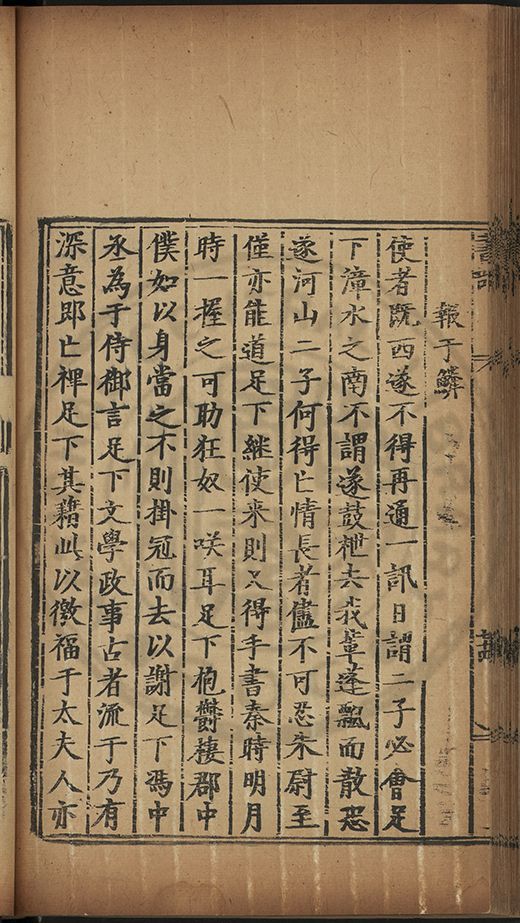 報于鱗
使者既西遂不得再通一訊日謂二子必會足
下漳水之南不謂遂鼓枻去我輩蓬飄而散恐
遂河山二子何得亡情長者儘不可忍朱尉至
僅亦能道足下継使来則又得手書秦時明月
時一握之可助狂奴一咲耳足下抱欝棲郡中
僕如以身當之不則掛冠而去以謝足下馮中
丞為于侍御言足下文學政事古者流于乃有
深意即亡裨足下其藉此以徼福于太夫人亦